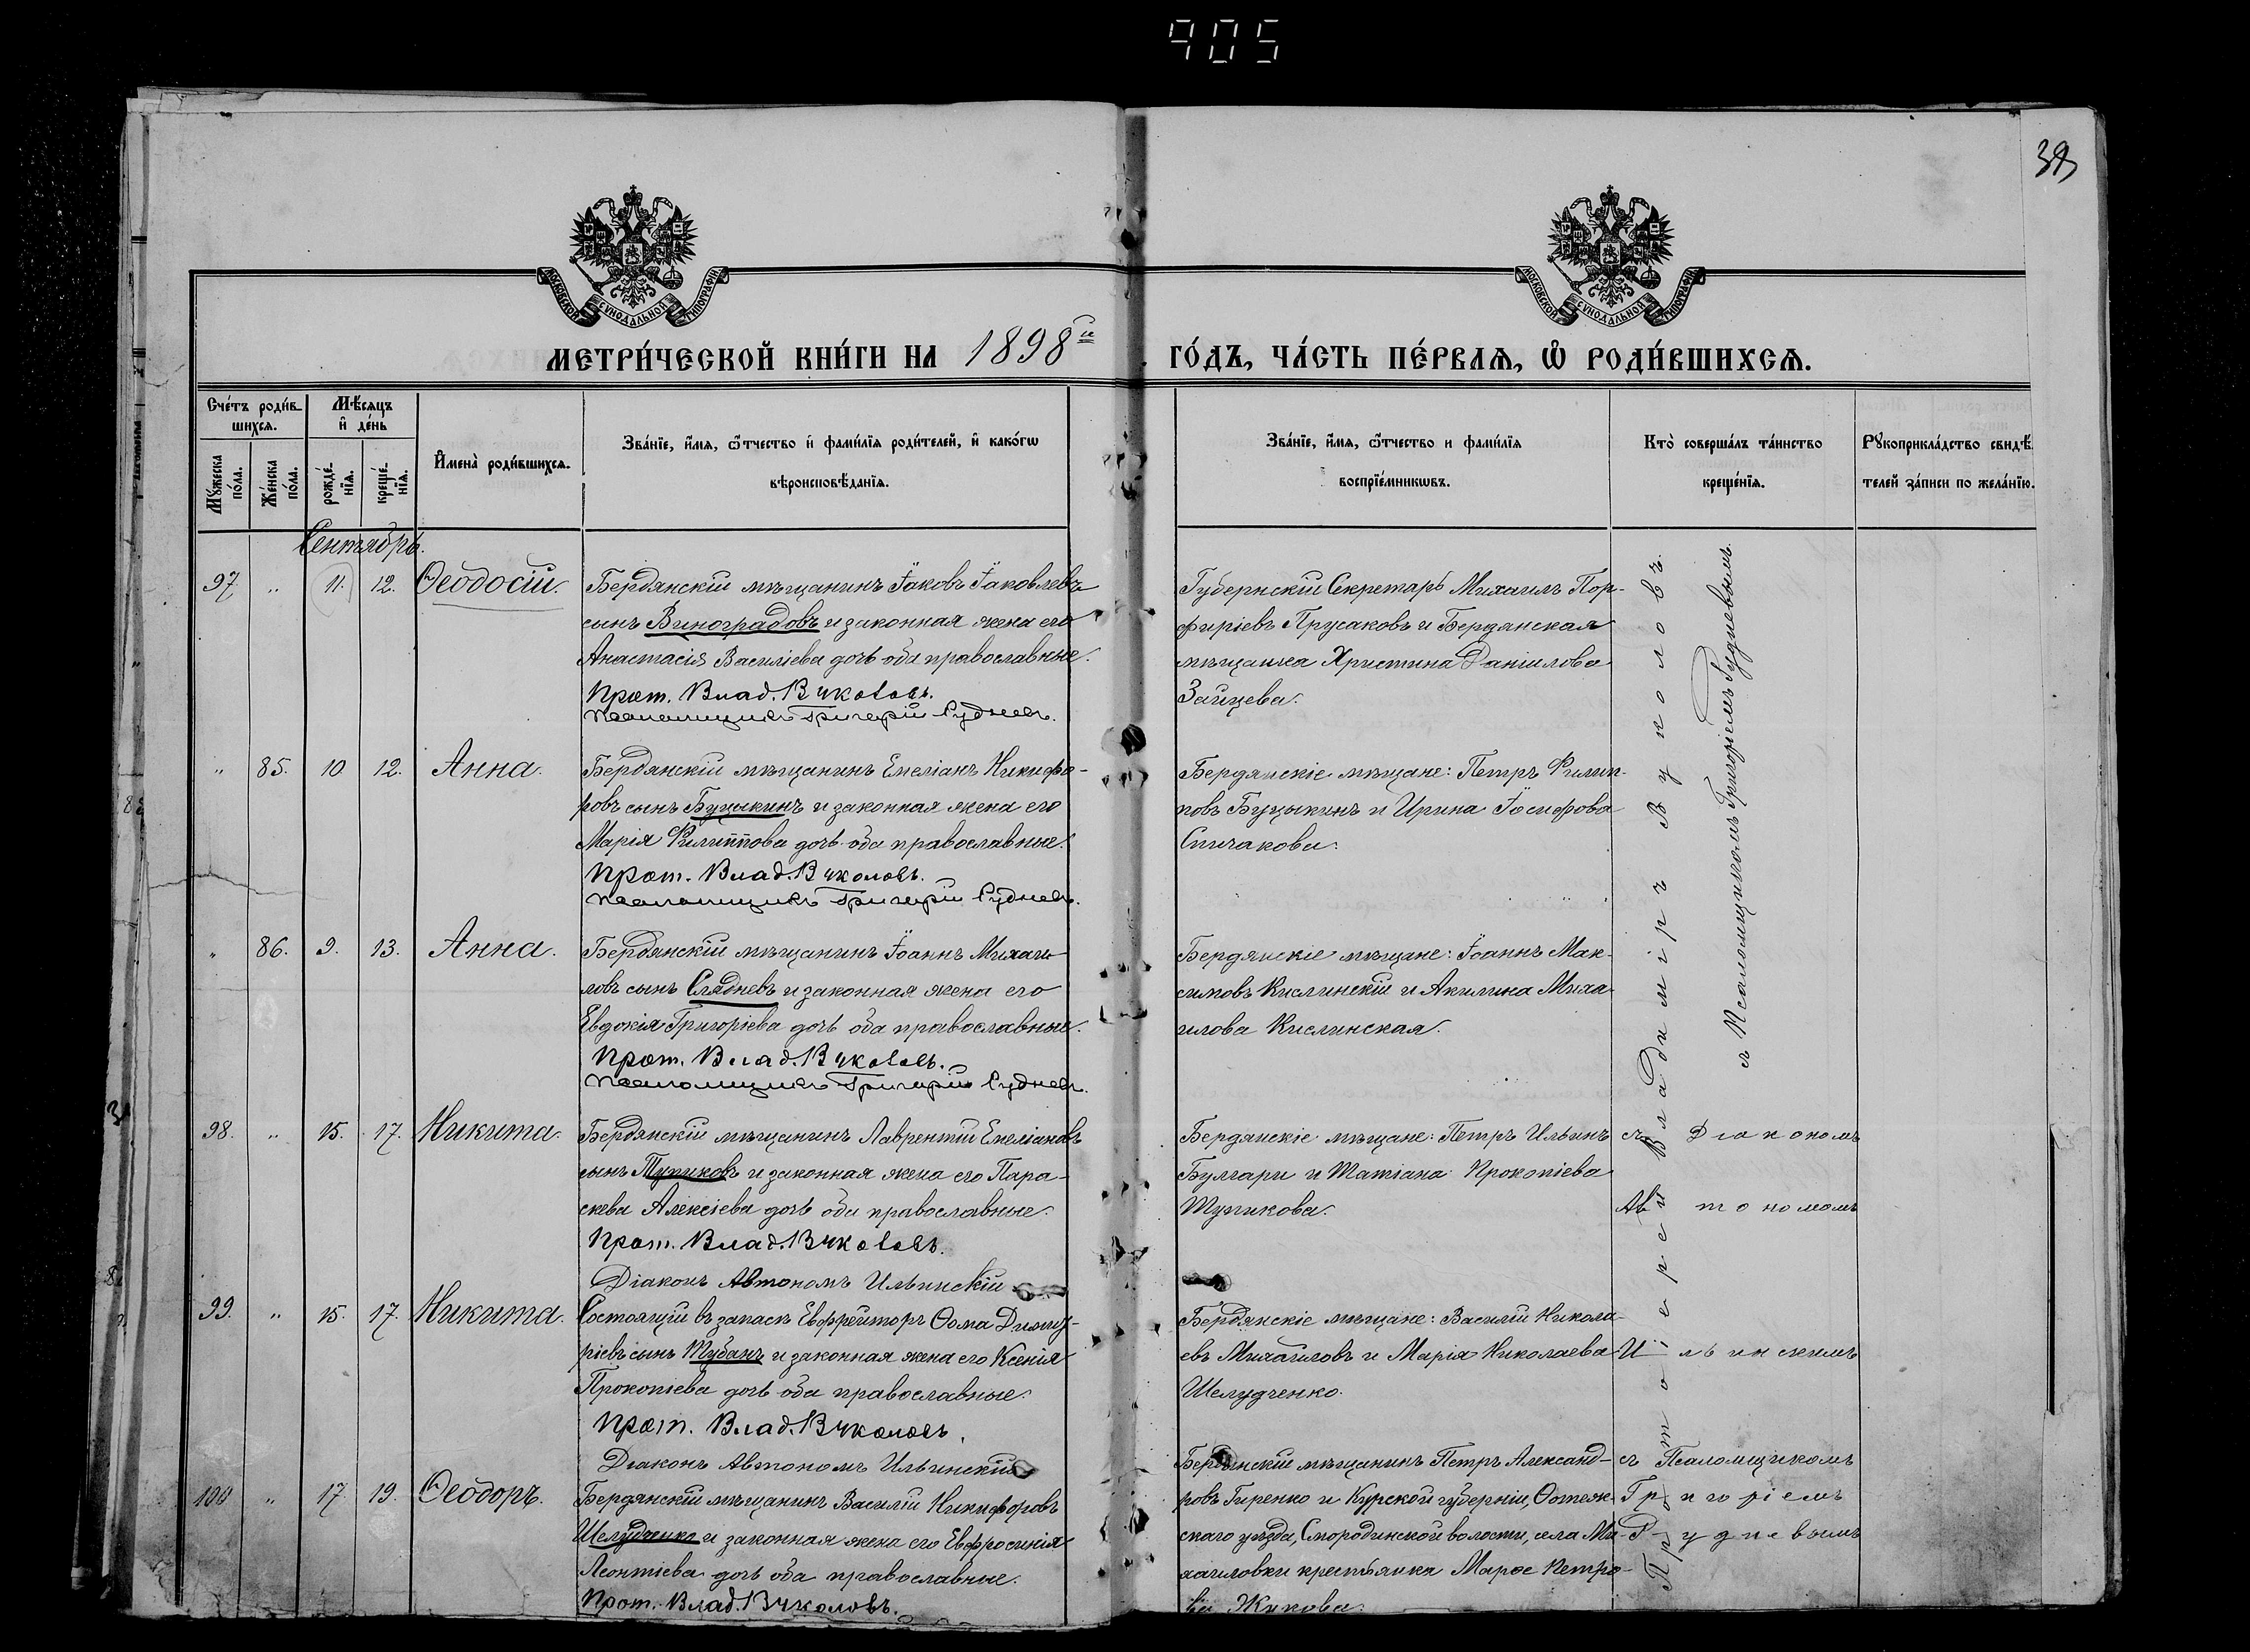 905
39
МОСКОВСКОЙ СѴНОДАЛЬНОЙ ТИПОГРАФІИ
МОСКОВСКОЙ СѴНОДАЛЬНОЙ ТИПОГРАФІИ
МЕТРИ́ЧЕСКОЙ КНИ́ГИ НА 1898й
ГО́ДЪ, ЧА́СТЬ ПЕ́РВАѦ, Ѡ҆ РОДИ́ВШИХСѦ.
Сче́тъ роди́в-
шихсѧ.
Мꙋ́жеска по́ла.
Же́нска по́ла.
Мѣ́сѧцъ
и҆ де́нь
рожде́-
нїѧ.
креще́-
нїѧ.
И҆мена̀ роди́вшихсѧ.
Зва́нїе, и҆́мѧ, ѻ҆́тчество и҆ фами́лїѧ роди́телей, и҆ како́гѡ
вѣроисповѣ́данїѧ.
Зва́нїе, и҆́мѧ, ѻ҆́тчество и фами́лїѧ
воспрїе́мникѡвъ.
Кто̀ соверша́лъ та́инство
креще́нїѧ.
Рꙋкоприкла́дство свидѣ́-
телей за́писи по жела́нїю.
Сентябрь.
97 " 11. 12. Ѳеодосій. Бердянскій мѣщанинъ Іаковъ Іаковлевъ
сынъ Виноградовъ и законная жена его
Анастасія Василіева дочь оба православные.
Прот. Влад. Вуколовъ.
Псаломщикъ Григорій Рудневъ.
Губернскій Секретарь Михаилъ Пор-
фиріевъ Прусаковъ и Бердянская
мѣщанка Христина Даніилова
Зайцева.
" 85. 10 12. Анна. Бердянскій мѣщанинъ Емеліанъ Никифо-
ровъ сынъ Буцыкинъ и законная жена его
Марія Филиппова дочь оба православные.
Прот. Влад. Вуколовъ.
Псаломщикъ Григорій Рудневъ.
Бердянскіе мѣщане: Петръ Филип-
повъ Буцыкинъ и Ирина Іосифова
Спичакова.
" 86. 9. 13. Анна. Бердянскій мѣщанинъ Іоаннъ Михаи-
ловъ сынъ Слядневъ и законная жена его
Евдокія Григоріева дочь оба православные.
Прот. Влад. Вуколовъ.
Псаломщикъ Григорій Рудневъ.
Бердянскіе мѣщане: Іоаннъ Мак-
симовъ Кислинскій и Акилина Миха-
илова Кислинская.
98. " 15. 17. Никита. Бердянскій мѣщанинъ Лаврентій Емеліановъ
сынъ Тупиковъ и законная жена его Пара-
скева Алексіева дочь оба православные.
Прот. Влад. Вуколовъ.
Діаконъ Автономъ Ильинскій
Бердянскіе мѣщане: Петръ Ильинъ
Булгари и Татіана Прокопіева
Тупикова.
99. " 15. 17. Никита. Состоящій въ запасѣ Ефрейторъ Ѳома Димит-
ріевъ сынъ Тубанъ и законная жена его Ксенія
Прокопіева дочь оба православные.
Прот. Влад. Вуколовъ.
Діаконъ Автономъ Ильинскій
Бердянскіе мѣщане: Василій Никола-
евъ Михаиловъ и Марія Николаева
Шелудченко.
100 " 17 19. Ѳеодоръ. Бердянскій мѣщанинъ Василій Никифоровъ
Шелудченко и законная жена его Евфросинія
Леонтіева дочь оба православные.
Прот. Влад. Вуколовъ.
Бердянскій мѣщанинъ Петръ Александ-
ровъ Гиренко и Курской губерніи,
скаго уѣзда, Смородинской волости, села Ми-
хаиловки крестьянка Петро-
ва Жукова.
Протоіерей Владиміръ Вуколовъ.
съ Псаломщикомъ Григоріемъ Рудневымъ.
съ Діакономъ
Автономомъ
Ильинскимъ
съ Псаломщикомъ
Григоріемъ
Рудневымъ